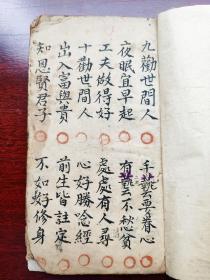 九勸世間人 手藝要心
夜眠宜早起 有藝不愁貧
工夫做得好 處處有人尋
十勸世間人 心好勝唸經
出入富與貴 前生皆註定
知恩賢君子 不如好修身